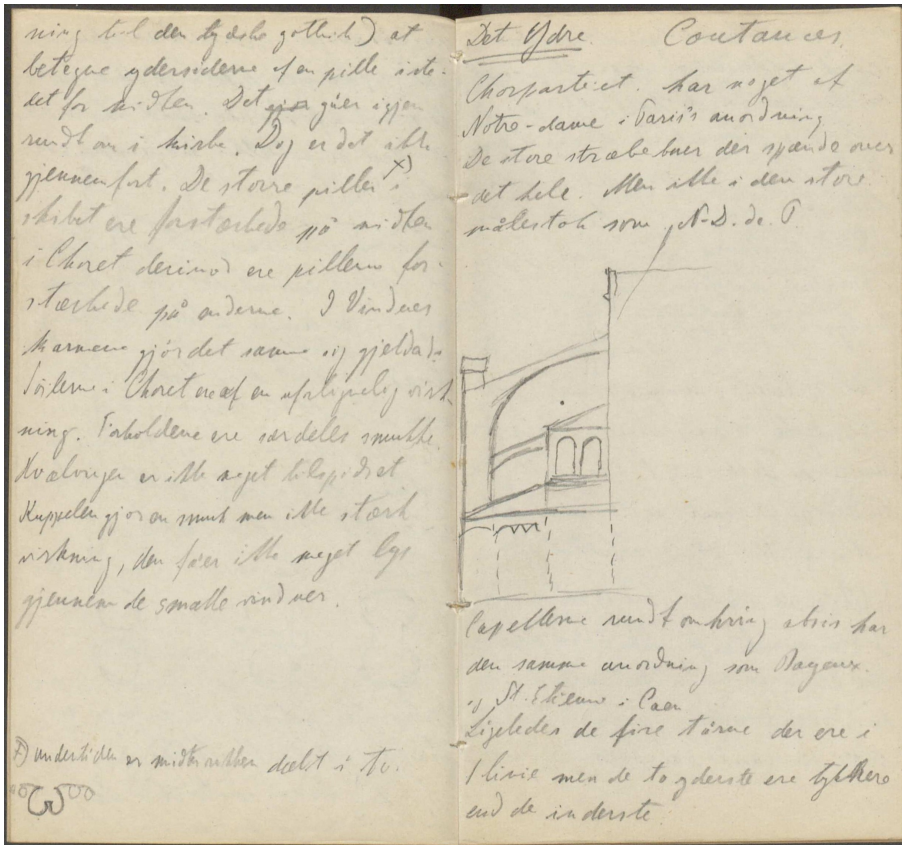 ning til den tydske gothik) at
betegne ydersiderne af en pille iste-
det for midten. Det går igjen
rundt om i kirke. Dog er det ikke
gjennemført. De større piller x) i
skibet ere forstærkede på midten
i Choret derimod ere pillerne for-
stærkede på enderne. I Vindues
karmene gjør det samme sig gjeldende
Søilerne i Choret ere af en uforlignelig virk
ning. Forholdene ere særdeles smukke.
Hvælvinger er ikke meget tilspidset
Kuppelen gjør en smuk men ikke stærk
virkning, den fåer ikke meget lys
gjennem de smalle vinduer.
x) undertiden er midt dælt i to.
Det Ydre. Coutances.
Chorpartiet. har noget af
Notre-dame i Paris's anordning
De store stræbebuer der spænde over
det hele. Men ikke i den store
målestok som N-D. de. P.
Capellerne rundt omkring absis har
den samme anordning som Bayeux.
og St. Etienne i Caen
Ligeledes de fire tårne der ere i
1 linie men de to yderste ere tykkere
end de inderste.